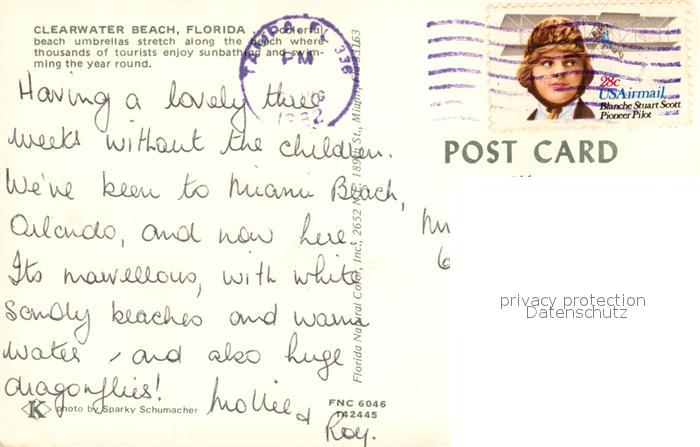 CLEARWATER BEACH, FLORIDA
beach umbrellas stretch along the beach where
thousands of tourists enjoy sunbathing and swim-
ming the year round.
Having a lovely three
weeks without the children.
We've been to Miami Beach,
Orlando, and now here.
Its marvellous, with white
sandy beaches and warm
water, and also huge
dragonflies!
Mollie &
Roy.
K photo by Sparky Schumacher
FNC 6046
142445
Florida Natural Color, Inc., 2652 N.E. 189th St., Miami, 33163
TAMPA, FL 336
PM
1982
28c
USAirmail
Blanche Stuart Scott
Pioneer Pilot
POST CARD
6
privacy protection
Datenschutz